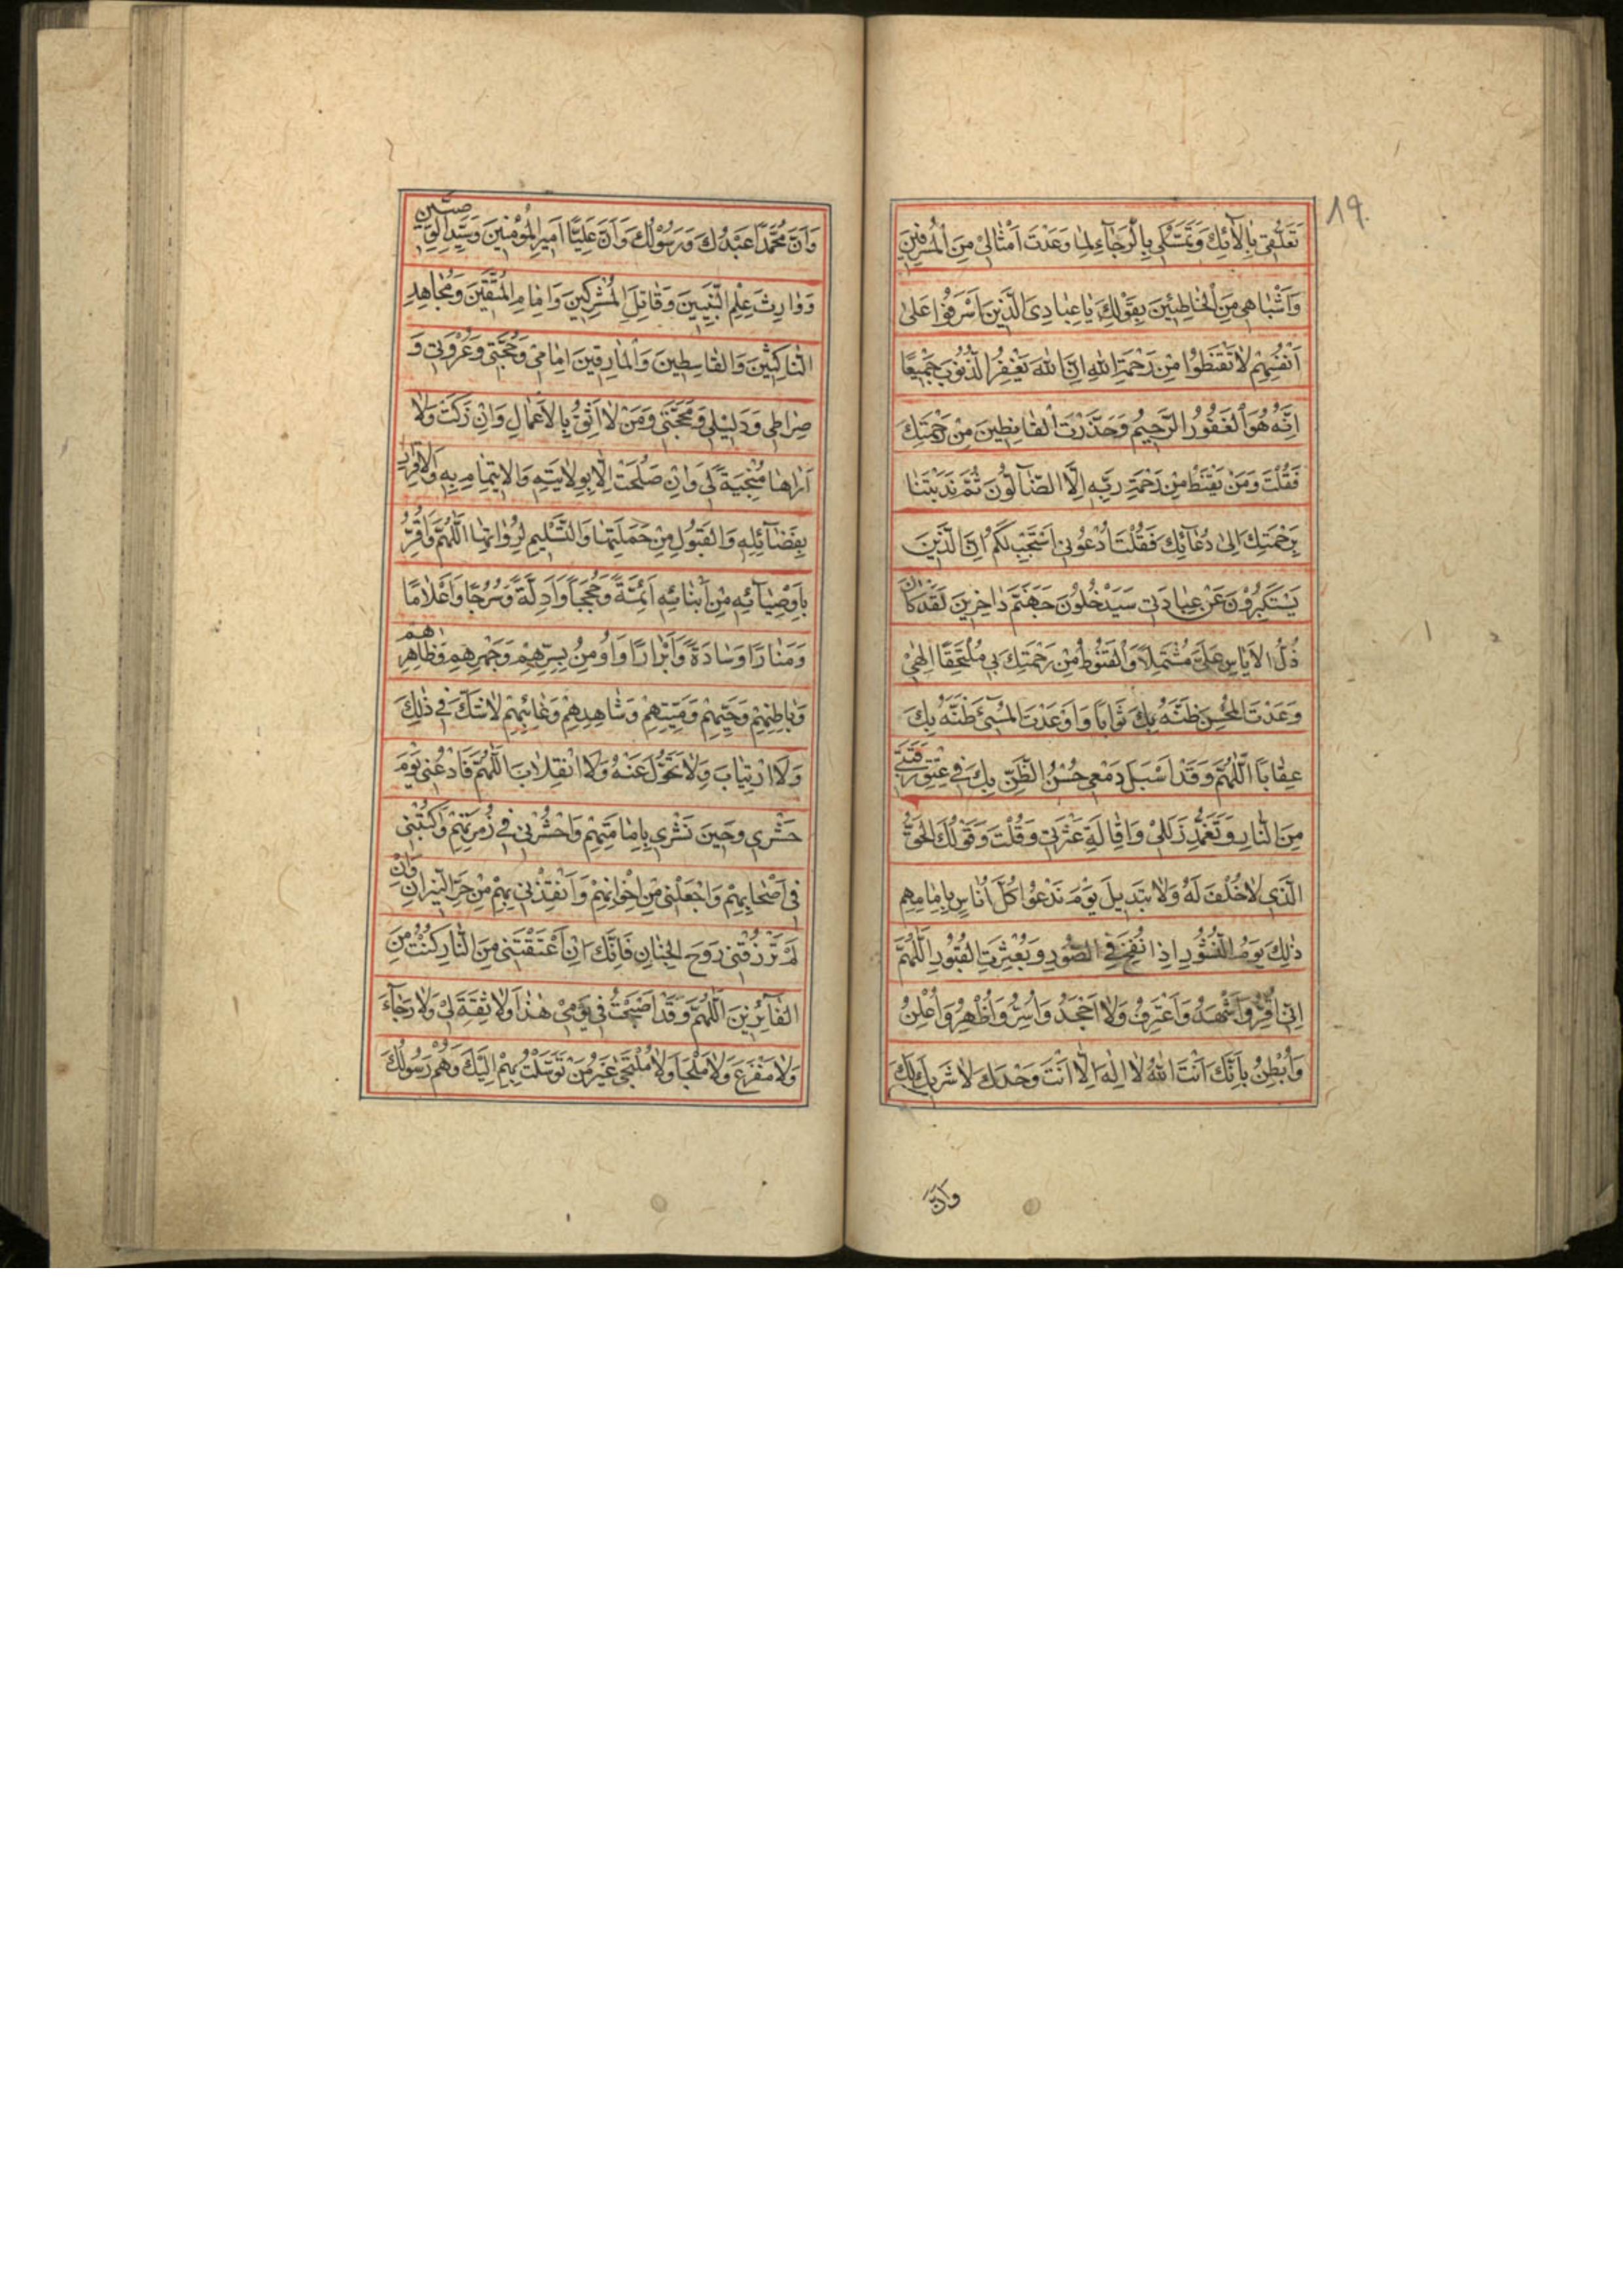 19.
تَعَلُّقِي بِالْآئِكَ وَتَمَسُّكِي بِالرَّجَآءِ لِمَا وَعَدْتَ اَمْثَالِيْ مِنَ الْمُسْرِفِيْنَ
وَاَشْبَاهِي مِنَ الْخَاطِئِيْنَ بِقَوْلِكَ يَا عِبَادِيَ الَّذِيْنَ اَسْرَفُوْا عَلٰى
اَنْفُسِهِمْ لَا تَقْنَطُوْا مِنْ رَحْمَةِ اللهِ اِنَّ اللهَ يَغْفِرُ الذُّنُوْبَ جَمِيْعًا
اِنَّهُ هُوَ الْغَفُوْرُ الرَّحِيْمُ وَحَذَّرْتَ الْقَانِطِيْنَ مِنْ رَحْمَتِكَ
فَقُلْتَ وَمَنْ يَقْنَطُ مِنْ رَحْمَةِ رَبِّهِ اِلَّا الضَّآلُّوْنَ ثُمَّ نَدَبْتَنَا
بِرَحْمَتِكَ اِلٰى دُعَآئِكَ فَقُلْتَ ادْعُوْنِي اَسْتَجِبْ لَكُمْ اِنَّ الَّذِيْنَ
يَسْتَكْبِرُوْنَ عَنْ عِبَادَتِي سَيَدْخُلُوْنَ جَهَنَّمَ دَاخِرِيْنَ لَقَدْ كَانَ
ذُلُّ الْاَيَاسِ عَلَيَّ مُشْتَمِلًا وَالْقُنُوْطُ مِنْ رَحْمَتِكَ بِي مُلْتَحِفًا اِلٰهِيْ
وَعَدْتَ الْمُحْسِنَ ظَنَّهُ بِكَ ثَوَابًا وَاَوْعَدْتَ الْمُسِيْئَ ظَنَّهُ بِكَ
عِقَابًا اَللّٰهُمَّ وَقَدْ اَسْبَلَ دَمْعِي حُسْنُ الظَّنِّ بِكَ فِي عِتْقِ رَقَبَتِي
مِنَ النَّارِ وَتَغَمُّدِ زَلَلِيْ وَاِقَالَةِ عَثْرَتِي وَقُلْتَ وَقَوْلُكَ الْحَقُّ
الَّذِي لَا خُلْفَ لَهُ وَلَا تَبْدِيْلَ يَوْمَ نَدْعُوْا كُلَّ اُنَاسٍ بِاِمَامِهِمْ
ذٰلِكَ يَوْمُ النُّشُوْرِ اِذَا نُفِخَ فِي الصُّوْرِ وَبُعْثِرَتِ الْقُبُوْرِ اَللّٰهُمَّ
اِنِّي اُقِرُّ وَاَشْهَدُ وَاَعْتَرِفُ وَلَا اَجْحَدُ وَاُسِرُّ وَاُظْهِرُ وَاُعْلِنُ
وَاُبْطِنُ بِاَنَّكَ اَنْتَ اللهُ لَا اِلٰهَ اِلَّا اَنْتَ وَحْدَكَ لَا شَرِيْكَ لَكَ
وَاَنَّ
وَاَنَّ مُحَمَّدًا عَبْدُكَ وَرَسُوْلُكَ وَاَنَّ عَلِيًّا اَمِيْرُ الْمُؤْمِنِيْنَ وَسَيِّدِ الْوَصِيِّيْنَ
وَوَارِثَ عِلْمِ النَّبِيِّيْنَ وَقَاتِلَ الْمُشْرِكِيْنَ وَاِمَامِ الْمُتَّقِيْنَ وَمُجَاهِدِ
النَّاكِثِيْنَ وَالْقَاسِطِيْنَ وَالْمَارِقِيْنَ اِمَامِيْ وَحُجَّتِي وَعُرْوَتِي وَ
صِرَاطِي وَدَلِيْلِي وَمَحَجَّتِي وَمَنْ لَا اَثِقُ بِالْاَعْمَالِ وَاِنْ زَكَتْ وَلَا
اَرَاهَا مُنْجِيَةً لِي وَاِنْ صَلُحَتْ اِلَّا بِوِلَايَتِهِ وَالْاِيْتِمَامِ بِهِ وَالْاِقْرَارِ
بِفَضَآئِلِهِ وَالْقَبُوْلِ مِنْ حَمَلَتِهَا وَالتَّسْلِيْمِ لِرُوَاتِهَا اَللّٰهُمَّ وَاُقِرُّ
بِاَوْصِيَآئِهِ مِنْ اَبْنَائِهِ اَئِمَّةً وَحُجَجًا وَاَدِلَّةً وَسُرُجًا وَاَعْلَامًا
وَمَنَارًا وَسَادَةً وَاَبْرَارًا وَاُوْمِنُ بِسِرِّهِمْ وَجَهْرِهِمْ وَظَاهِرِهِمْ
وَبَاطِنِهِمْ وَحَيِّهِمْ وَمَيِّتِهِمْ وَشَاهِدِهِمْ وَغَائِبِهِمْ لَا شَكَّ فِي ذٰلِكَ
وَلَا ارْتِيَابَ وَلَا تَحَوُّلَ عَنْهُ وَلَا انْقِلَابَ اَللّٰهُمَّ فَادْعُنِي يَوْمَ
حَشْرِي وَحِيْنَ نَشْرِي بِاِمَامَتِهِمْ وَاحْشُرْنِي فِي زُمْرَتِهِمْ وَاكْتُبْنِي
فِي اَصْحَابِهِمْ وَاجْعَلْنِي مِنْ اِخْوَانِهِمْ وَاَنْقِذْنِي بِهِمْ مِنْ حَرِّ النِّيْرَانِ وَاِنْ
لَمْ تَرْزُقْنِي رَوْحَ الْجِنَانِ فَاِنَّكَ اِنْ اَعْتَقْتَنِي مِنَ النَّارِ كُنْتُ مِنَ
الْفَآئِزِيْنَ اَللّٰهُمَّ وَقَدْ اَصْبَحْتُ فِي يَوْمِيْ هٰذَا وَلَا ثِقَةَ لِيْ وَلَا رَجَآءَ
وَلَا مَفْزَعَ وَلَا مَلْجَأَ وَلَا مُلْتَجَى غَيْرُ مَنْ تَوَسَّلْتُ بِهِمْ اِلَيْكَ وَهُمْ رَسُوْلُكَ